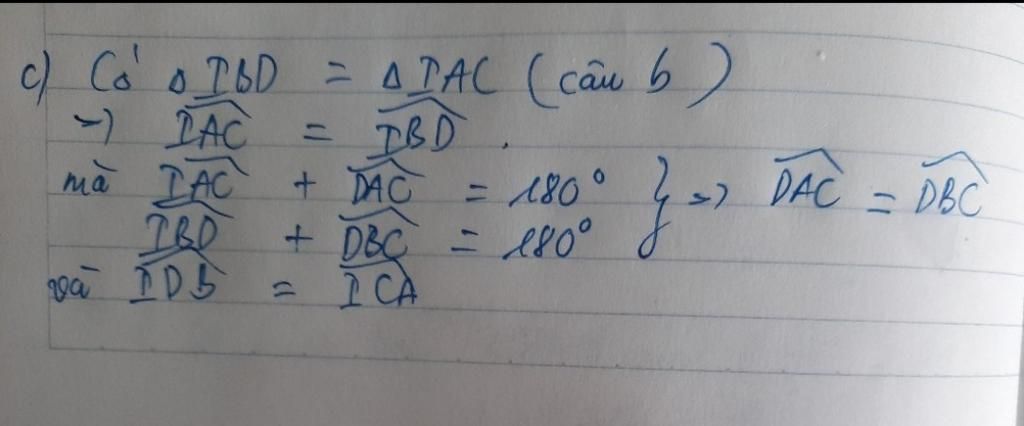 c) Có △IBD = △IAC (câu b)
=> \widehat{IAC} = \widehat{IBD}.
mà \widehat{IAC} + \widehat{DAC} = 180° } => \widehat{DAC} = \widehat{DBC}
\widehat{IBD} + \widehat{DBC} = 180°
và \widehat{IDB} = \widehat{ICA}